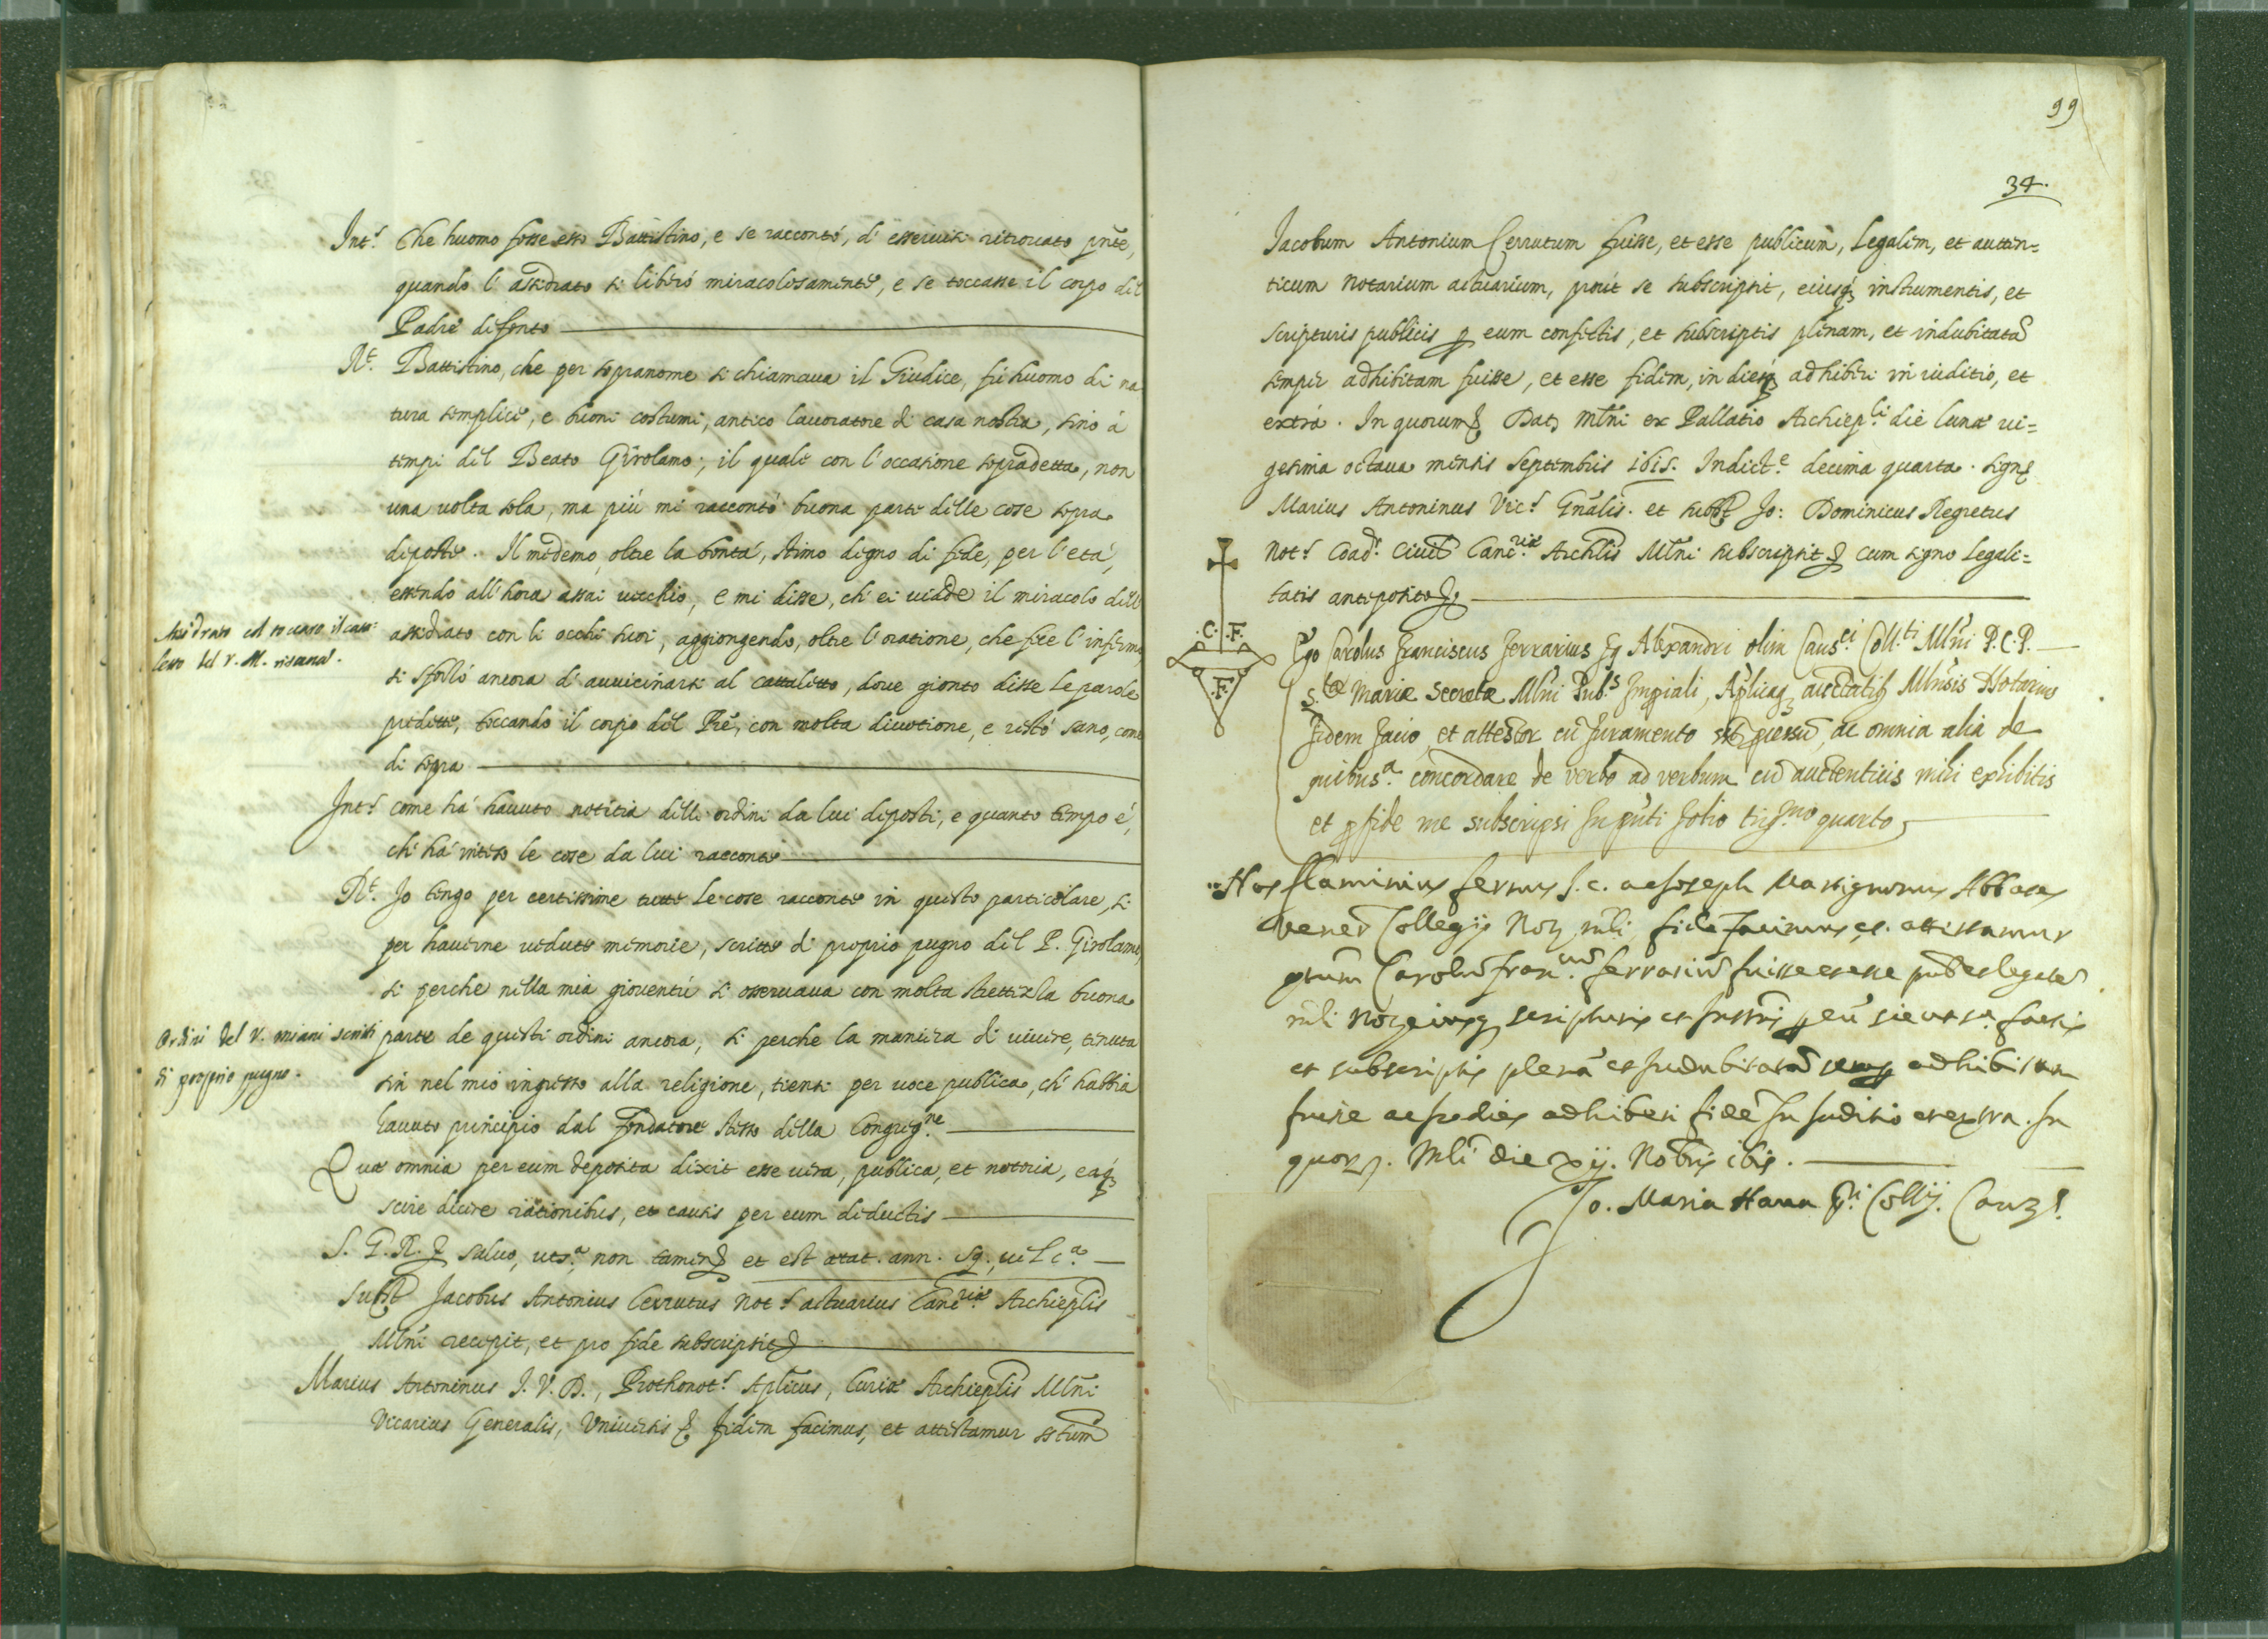 Int.s Che huomo fosse esso Battistino, e se raccontò, d'esseruisi ritrouato pñte,
quando l'assidrato si liberò miracolosamente, e se toccasse il corpo del
Padre defonto
R.t Battistino, che per sopranome si chiamaua il Giudice, fù huomo di na
tura semplice, e buoni costumi, antico lauoratore di casa nostra, sino à
tempi del Beato Girolamo; il quale con l'occasione sopradetta, non
una uolta sola, ma più mi raccontò buona parte delle cose sopra
deposte. Il medemo, oltre la bontà, stimo degno di fede, per l'età,
essendo all'hora assai uecchio, e mi disse, ch'ei uidde il miracolo dell'
Assidrato col toccare il cata:
assidrato con li occhi suoi, aggiongendo, oltre l'oratione, che fece l'infermo,
letto del V. M. risana.
si sforzò ancora d'auuicinarsi al cattaletto, doue gionto disse le parole
predette, toccando il corpo del Prẽ, con molta diuotione, e restò sano, come
di sopra
Int.s come hà hauuto notitia delli ordini da lui deposti, e quanto tempo è,
che hà inteso le cose da lui racconte
R.t Io tengo per certissime tutte le cose racconte in questo particolare, si
per hauerne uedute memorie, scritte di proprio pugno del P. Girolamo,
si perche nella mia gioventù si osseruaua con molta strettezza buona
Ordini del V. miani scritti
parte de questi ordini ancora, si perche la maniera di uiuere, tenuta
di proprio pugno.
sin nel mio ingresso alla religione, tiensi per uoce publica, ch'habbia
hauuto principio dal fondatore stesso della Congreg.ne
Quæ omnia per eum deposita dixit esse uera, publica, et notoria, eaq3
scire dicere rationibus, et causis per eum deductis
S. G. R. salvo, uts.a non tamen et est ætat. ann. 59., uel c.a
Subst Jacobus Antonius Cerrutus Not.s actuarius Canc.riæ Archieplis
Mlñi recepit, et pro fide subscripsit
Marius Antoninus J. V. D., Prothonot.s Aplicus, Curiæ Archieplis Mlñi
Vicarius Generalis, Vniuersis fidem facimus, et attestamur sstum
99
34.
Jacobum Antonium Cerrutum fuisse, et esse publicum, Legalem, et auten=
ticum Notarium actuarium, prout se subscripsit, eiusq3 instrumentis, et
scripturis publicis p eum confectis, et subscriptis plenam, et indubitatã
semper adhibitam fuisse, et esse fidem, in diesq3 adhiberi in iuditio, et
extrà. In quorum Dat3 Mlñi ex Pallatio Archiep.li die lunæ ui=
gesima octaua mensis Septembris 1615. Indict.e decima quarta. sign
Marius Antoninus Vic.s Gñalis. et subst Jo: Dominicus Regretus
Not.s Coad.s Ciuil Canc.riæ Archlis Mlñi subscripsit cum signo legali=
tatis anteposito
C. F.
F.
Ego Carolus Franciscus Ferrarius fq Alexandri olim Caus.ci Coll.ti Mlñi P. C. P.
S.tæ Mariæ Secretæ Mlñi Pub.s Imperiali, Aplicaq3 auctatib3 Mlñsis Notarius
fidem facio, et attestor cũ Juramento ac omnia alia de
quibus s.a concordare de verbo ad verbum cũ auctenticis mihi exhibitis
et p fide me subscripsi In pñti folio trig.mo quarto
Nos flaminius ferrus J. c. ac Joseph Abbates
Vener Collegij Not3 mli fidẽ facimus et attestamur
Carolũ fran.cum ferrariũ fuisse et esse pub et legalẽ
mli Not3 eiusq3 scripturis et Instris p eũ sic uts.a factis
et subscriptis plenã et Indubitatã semp adhibitam
fuisse ac In dies adhiberi fidẽ In Juditio et extra. In
quor3. Mli die xij. Nobris 1615.
Jo. Maria Haua Collij. Canz.s